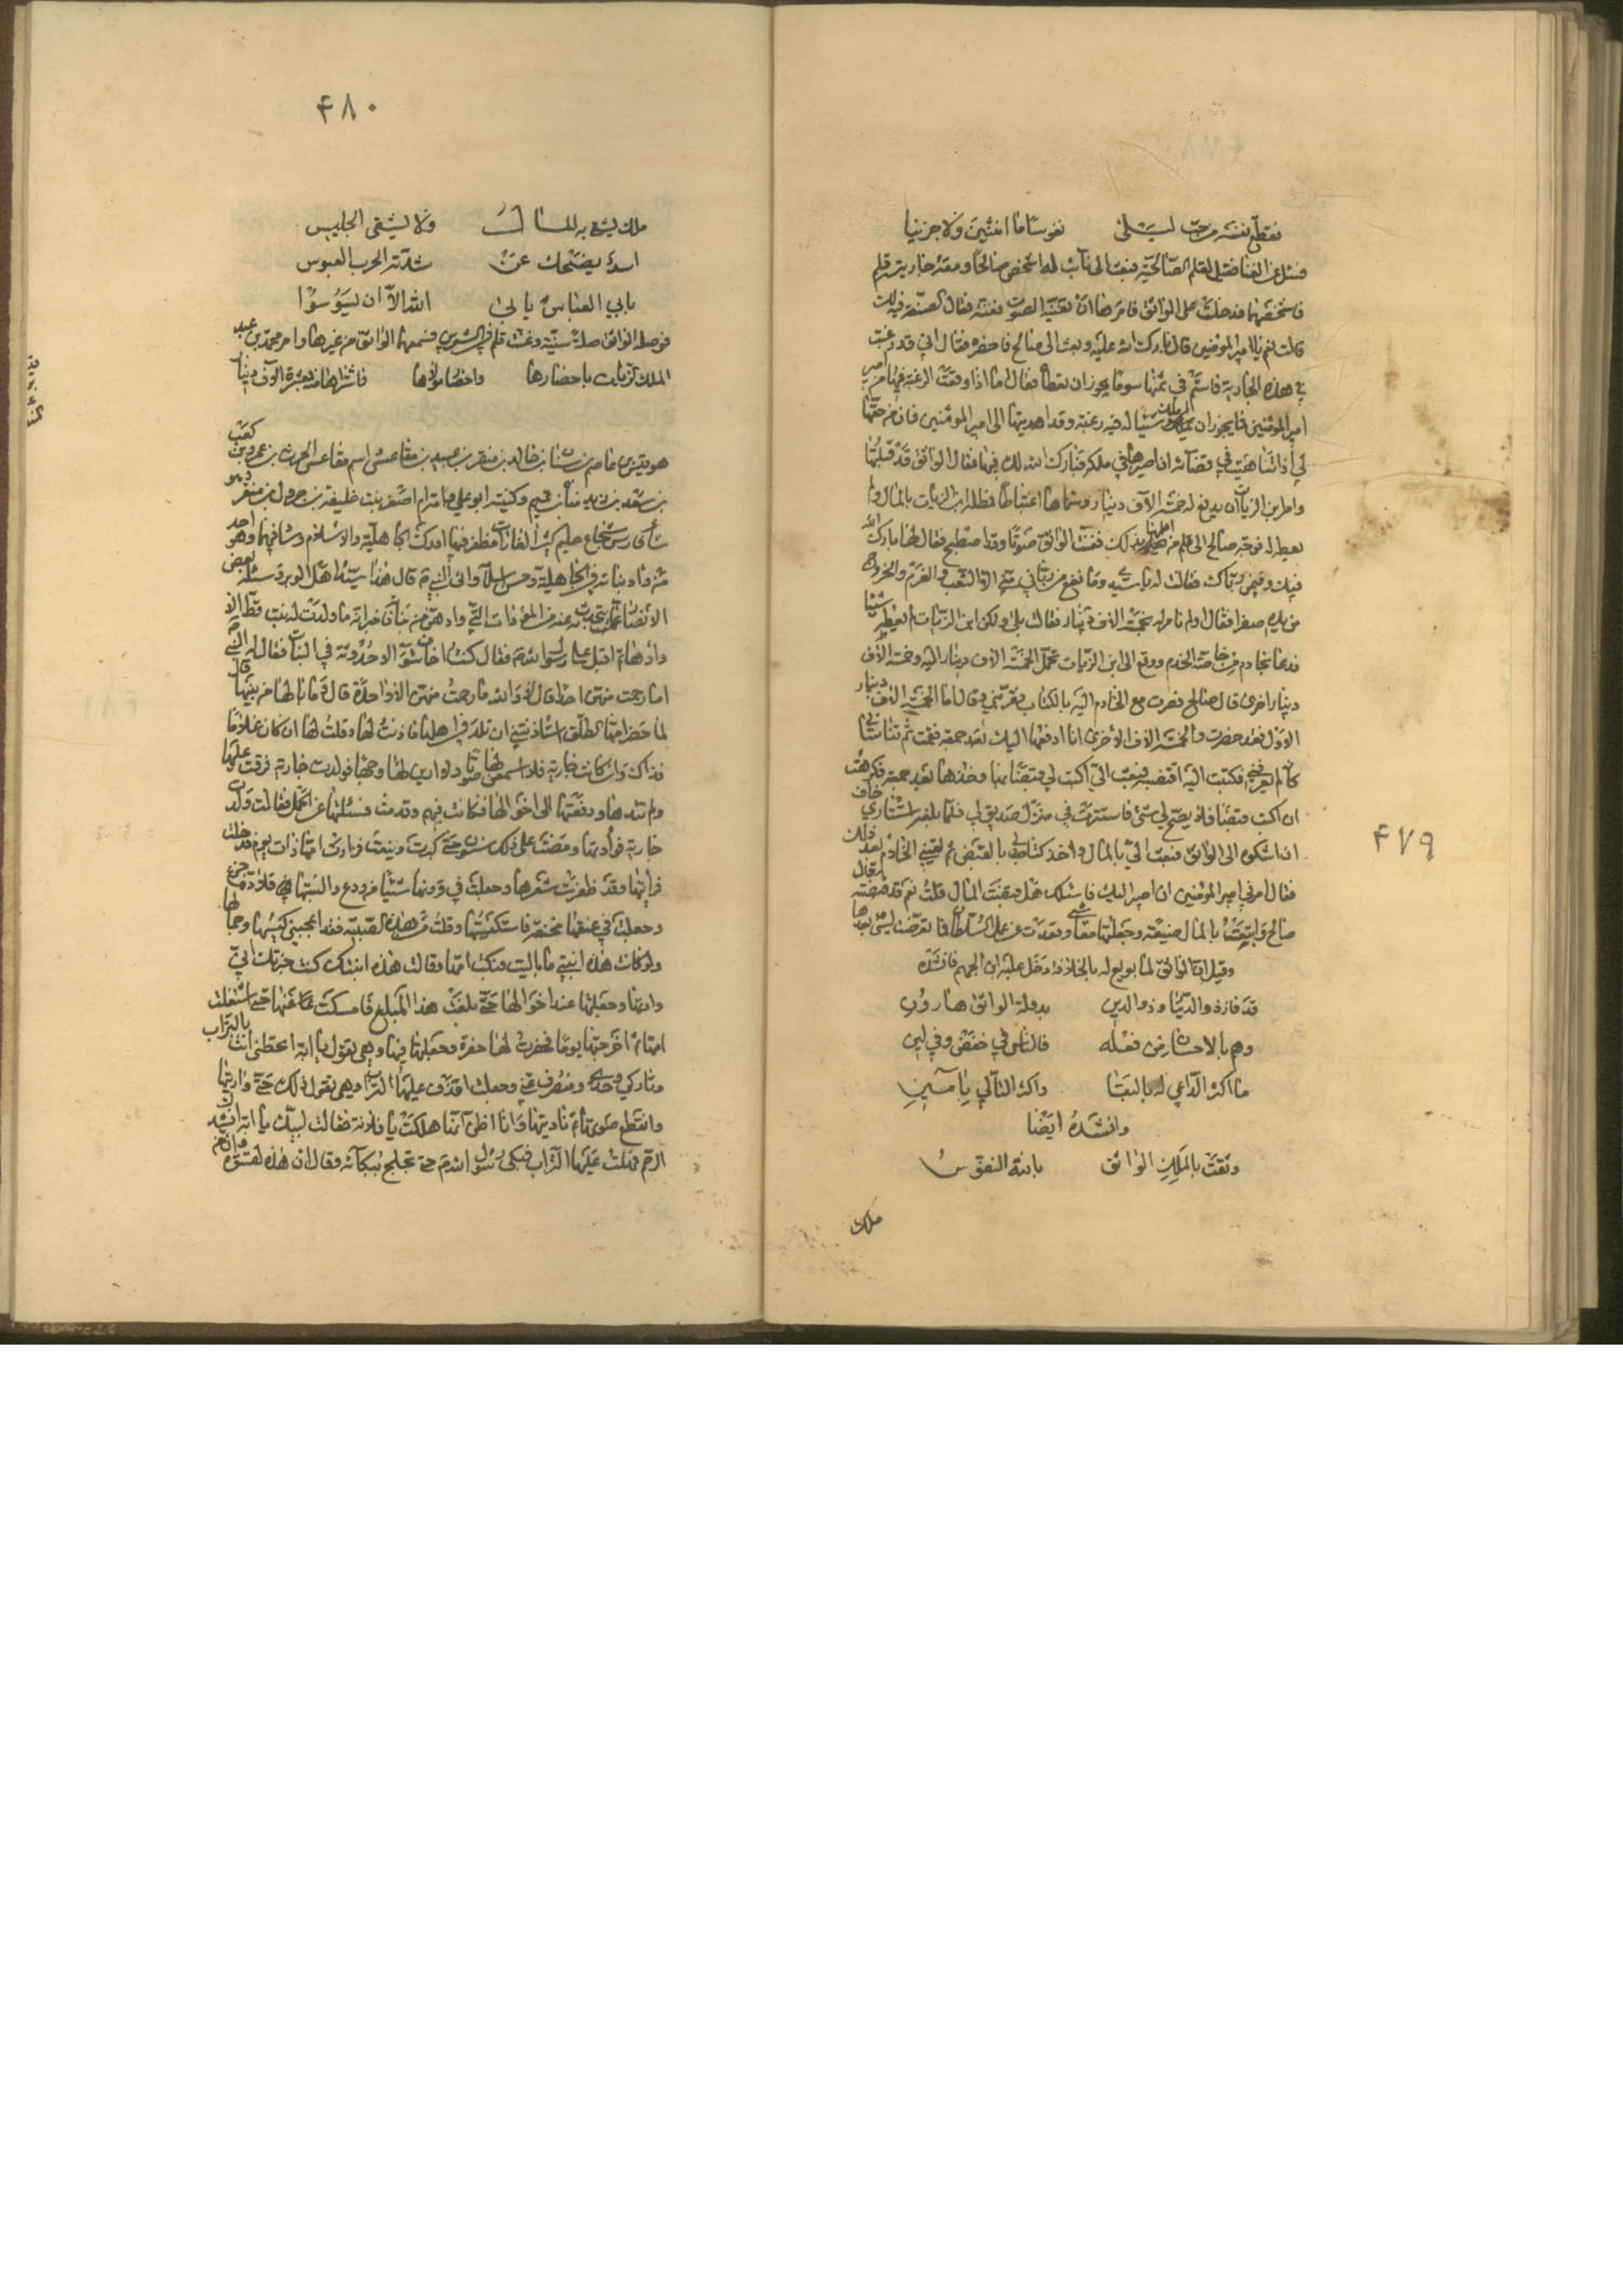 ۴۷۹
تقطع نفسه من حب ليلى نفوسا ما اثبن ولا جزينا
فسئل عن الغنا فقيل لقلم الصالحية فبعث الى نائب له اشخص صالحا ومعه جاريته قلم
فاشخصهما فدخلت على الواثق فامرها ان تغنيه الصوت فغنته فقال الصنعة فيه لك
قالت نعم يا امير المؤمنين قال بارك الله عليك وبعث الى صالح فاحضره فقال اني قد رغبت
في هذه الجارية فاستم في ثمنها سوما يجوز ان تعطاه فقال اما اذا وقعت الرغبة فيها من
امير المؤمنين فما يجوز ان املك شيئا له فيه رغبة وقد اهديتها الى امير المؤمنين فان من حقها
لي اذا تناهيت في قضائه ان اصيرها في ملكه فبارك الله لك فيها فقال الواثق قد قبلتها
وامر ابن الزيات ان يدفع له خمسة الاف دينار وسماها اغتباطا فمطله ابن الزيات بالمال ولم
يعطه له فوجه صالح الى قلم من اعلمها بذلك فغنت الواثق صوتا وقد اصطبح فقال لها بارك الله
فيك وفيمن رباك فقالت له يا سيدي وما نفع من رباني مني الا التعب والغرم والخروج
من يدي صفرا فقال اولم نامر له بخمسة الاف دينار فقالت بلى ولكن ابن الزيات لم يعطه شيئا
فدعا بخادم من خاصة الخدم ووقع الى ابن الزيات بحمل الخمسة الاف دينار اليه وخمسة الاف
دينار اخرى قال صالح فصرت مع الخادم اليه بالكتاب فقربني وقال اما الخمسة الاف دينار
الاول فقد حضرت والخمسة الاف الاخرى انا ادفعها اليك بعد جمعة فقمت ثم تناساني
كانه لم يعرفني فكتبت اليه اقتضيه فبعث الي اكتب لي قبضا بها وخذها بعد جمعة فكرهت
ان اكتب قبضا فلا يصح لي شئ فاستترت في منزل صديق لي فلما بلغه استتاري خاف
ان اشكوه الى الواثق فبعث الي بالمال واخذ كتابي بالقبض ثم لقيني الخادم بعد ذلك
فقال امرني امير المؤمنين ان اصير اليك فاسئلك هل قبضت المال قلت نعم قد قبضته قال
صالح وابتعت بالمال ضيعة وجعلتها معاشي وقعدت عن عمل السلطان فما تعرضت لشئ بعدها
وقيل ان الواثق لما بويع له بالخلافة دخل عليه ابن الجهم فانشده
قد فاز ذو الدنيا وذو الدين بدولة الواثق هارون
وعم بالاحسان من فعله فالناس في خفض وفي لين
ما اكثر الداعي له بالبقا واكثر التالي بامين
وانشده ايضا
وثقت بالملك الواثق بالله النفوس
ملك
۴۸۰
ملك يشقى به المال ولا يشقى الجليس
اسد يضحك عن شداته الحرب العبوس
يابني العباس يابى الله الا ان تسوسوا
فوصله الواثق صلة سنية وغنت قلم في الشعرين فسمعها الواثق من غيرها وامر محمد بن عبد
الملك الزيات باحضارها واحضار مولاها فاشتراها منه بعشرة الاف دينار
هو قيس بن عاصم بن سنان بن خالد بن منقر بن عبيد بن مقاعس واسم مقاعس الحرث بن عمرو بن كعب
بن سعد بن زيد مناة بن تميم وكنيته ابو علي وامه ام اصفر بنت خليفة بن جرول بن منقر وهو
شاعر فارس شجاع حليم كثير الغارات مظفر فيها ادرك الجاهلية والاسلام وساد فيهما وهو احد
من واد بناته في الجاهلية وحسن اسلامه واتى النبي ثم قال هذا سيد اهل الوبر وسئله بعض
الانصار عما يتحدث به عنه من المؤودات التي وادهن من بناته فاخبر انه ما ولدت له بنت قط الا
وادها ثم اقبل على رسول الله ص فقال كنت اخاف سوء الاحدوثة في البنات فقال له النبي ص
اما رحمت منهن احدا قال لا والله ما رحمت منهن الا واحدة قال وما بالها من بينها قال
لما حضر امها الطلق استاذنتني ان تلد في اهلها فاذنت لها وقلت لها ان كان غلاما
فذاك وان كانت جارية فلا اسمعن لها صوتا ولا ارين لها وجها فولدت جارية فرقت عليها
ولم تئدها ودفعتها الى اخوالها فكانت فيهم وقدمت فسئلتها عن الحمل فقالت ولدت
جارية فوأدتها ومضت على ذلك سنون حتى كبرت وينعت فزارت امها ذات يوم فدخلت
فرأيتها وقد ظفرت شعرها وجعلت في قرونها شيئا من ودع والبستها قلادة جزع
وجعلت في عنقها مخنقة فاستكيستها وقلت من هذه الصبية فقد اعجبني كيسها وجمالها
ولو كانت هذه ابنتي ما باليت فبكت امها وقالت هذه ابنتك كنت خبرتك اني
وادتها وجعلتها عند اخوالها حتى بلغت هذا المبلغ فامسكت عنها حتى اشتغلت
امها ثم اخرجتها يوما فحفرت لها حفرة وجعلتها فيها وهي تقول يا ابة امغطي انت بالتراب
وتاركي وحدي ومنصرف عني وجعلت اقذف عليها التراب وهي تقول ذلك حتى واريتها
وانقطع صوتها ثم ناديتها وانا اظن انها هلكت يا فلانة فقالت لبيك يا ابة
فهلت عليها التراب فبكى رسول الله ص حتى تخلج ببكائه وقال ان هذه لقسوة